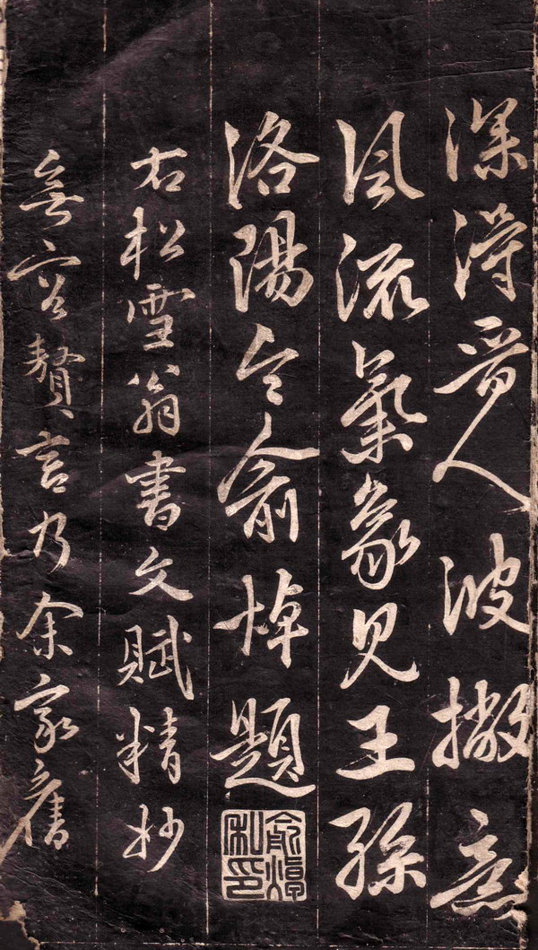 深得晉人波撇意
風流氣象見王孫
洛陽令俞焯題
俞焯私印
右松雪翁書文賦精妙
無容贅言乃余家舊